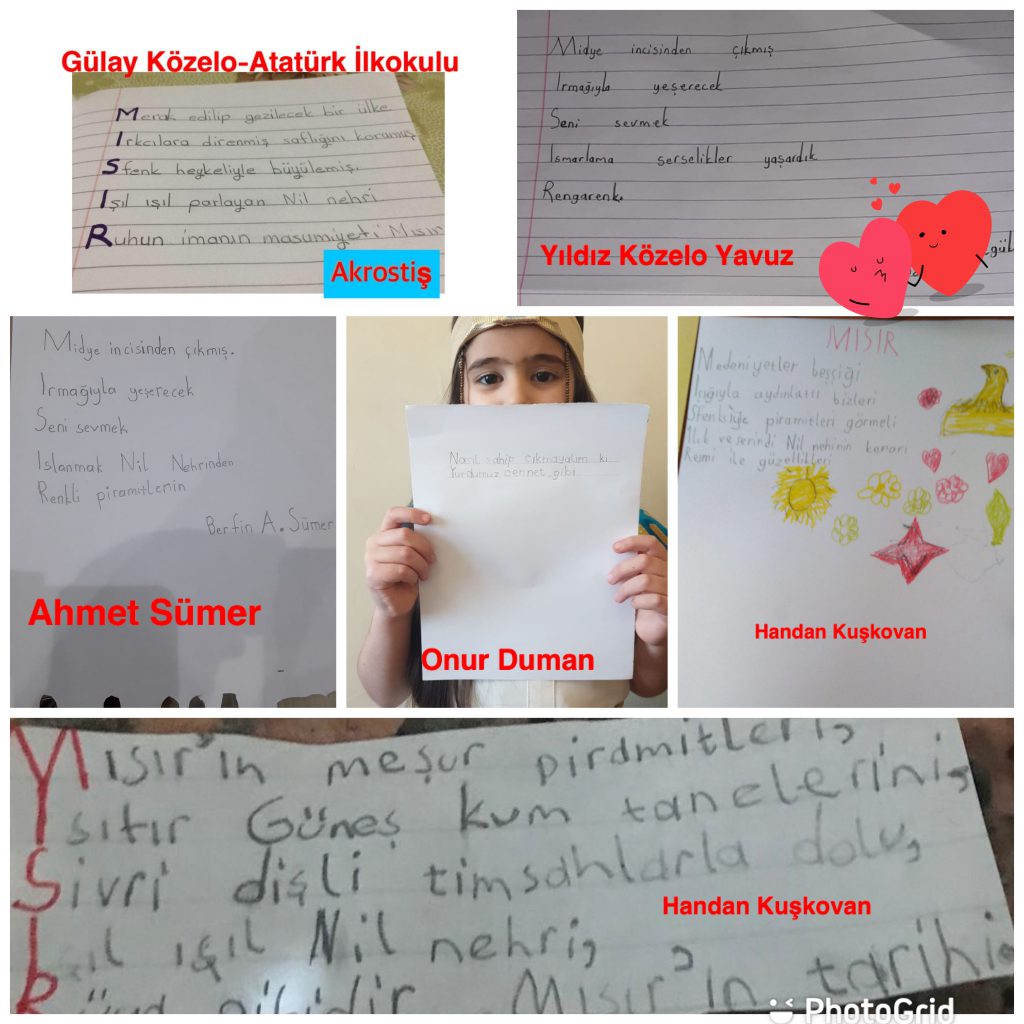 Gülay Közelo-Atatürk İlkokulu
Merak edilip gezilecek bir ülke.
Irkcılara direnmiş saflığını korumuş,
Sfenk heykeliyle büyülemiş.
Işıl ışıl parlayan Nil nehri.
Ruhun imanın masumiyeti Mısır
Akrostiş
Midye incisinden çıkmış
Irmağıyla yeşerecek
Seni sevmek
Ismarlama serselikler yaşardık
Rengarenk.
Yıldız Közelo Yavuz
Midye incisinden çıkmış.
Irmağıyla yeşerecek
Seni sevmek
Islanmak Nil Nehrinden
Renkli piramitlerin
Berfin A. Sümer
Ahmet Sümer
Nasıl sahip çıkmayalım ki
Yurdumuz cennet gibi
Onur Duman
MISIR
Medeniyetler beşçiği
Işığıyla aydınlattı bizleri
Sfenksiyle piramitleri görmeli
Ilık ve serindi Nil nehinin kenarı
Resmi ile güzellikleri
Handan Kuşkovan
Mısır'ın meşur piramitleri,
Isıtır Güneş kum tanelerini,
Sivri dişli timsahlarla dolu,
Işıl ışıl Nil nehri,
gibidir Mısır'ın tarihi
Handan Kuşkovan
PhotoGrid